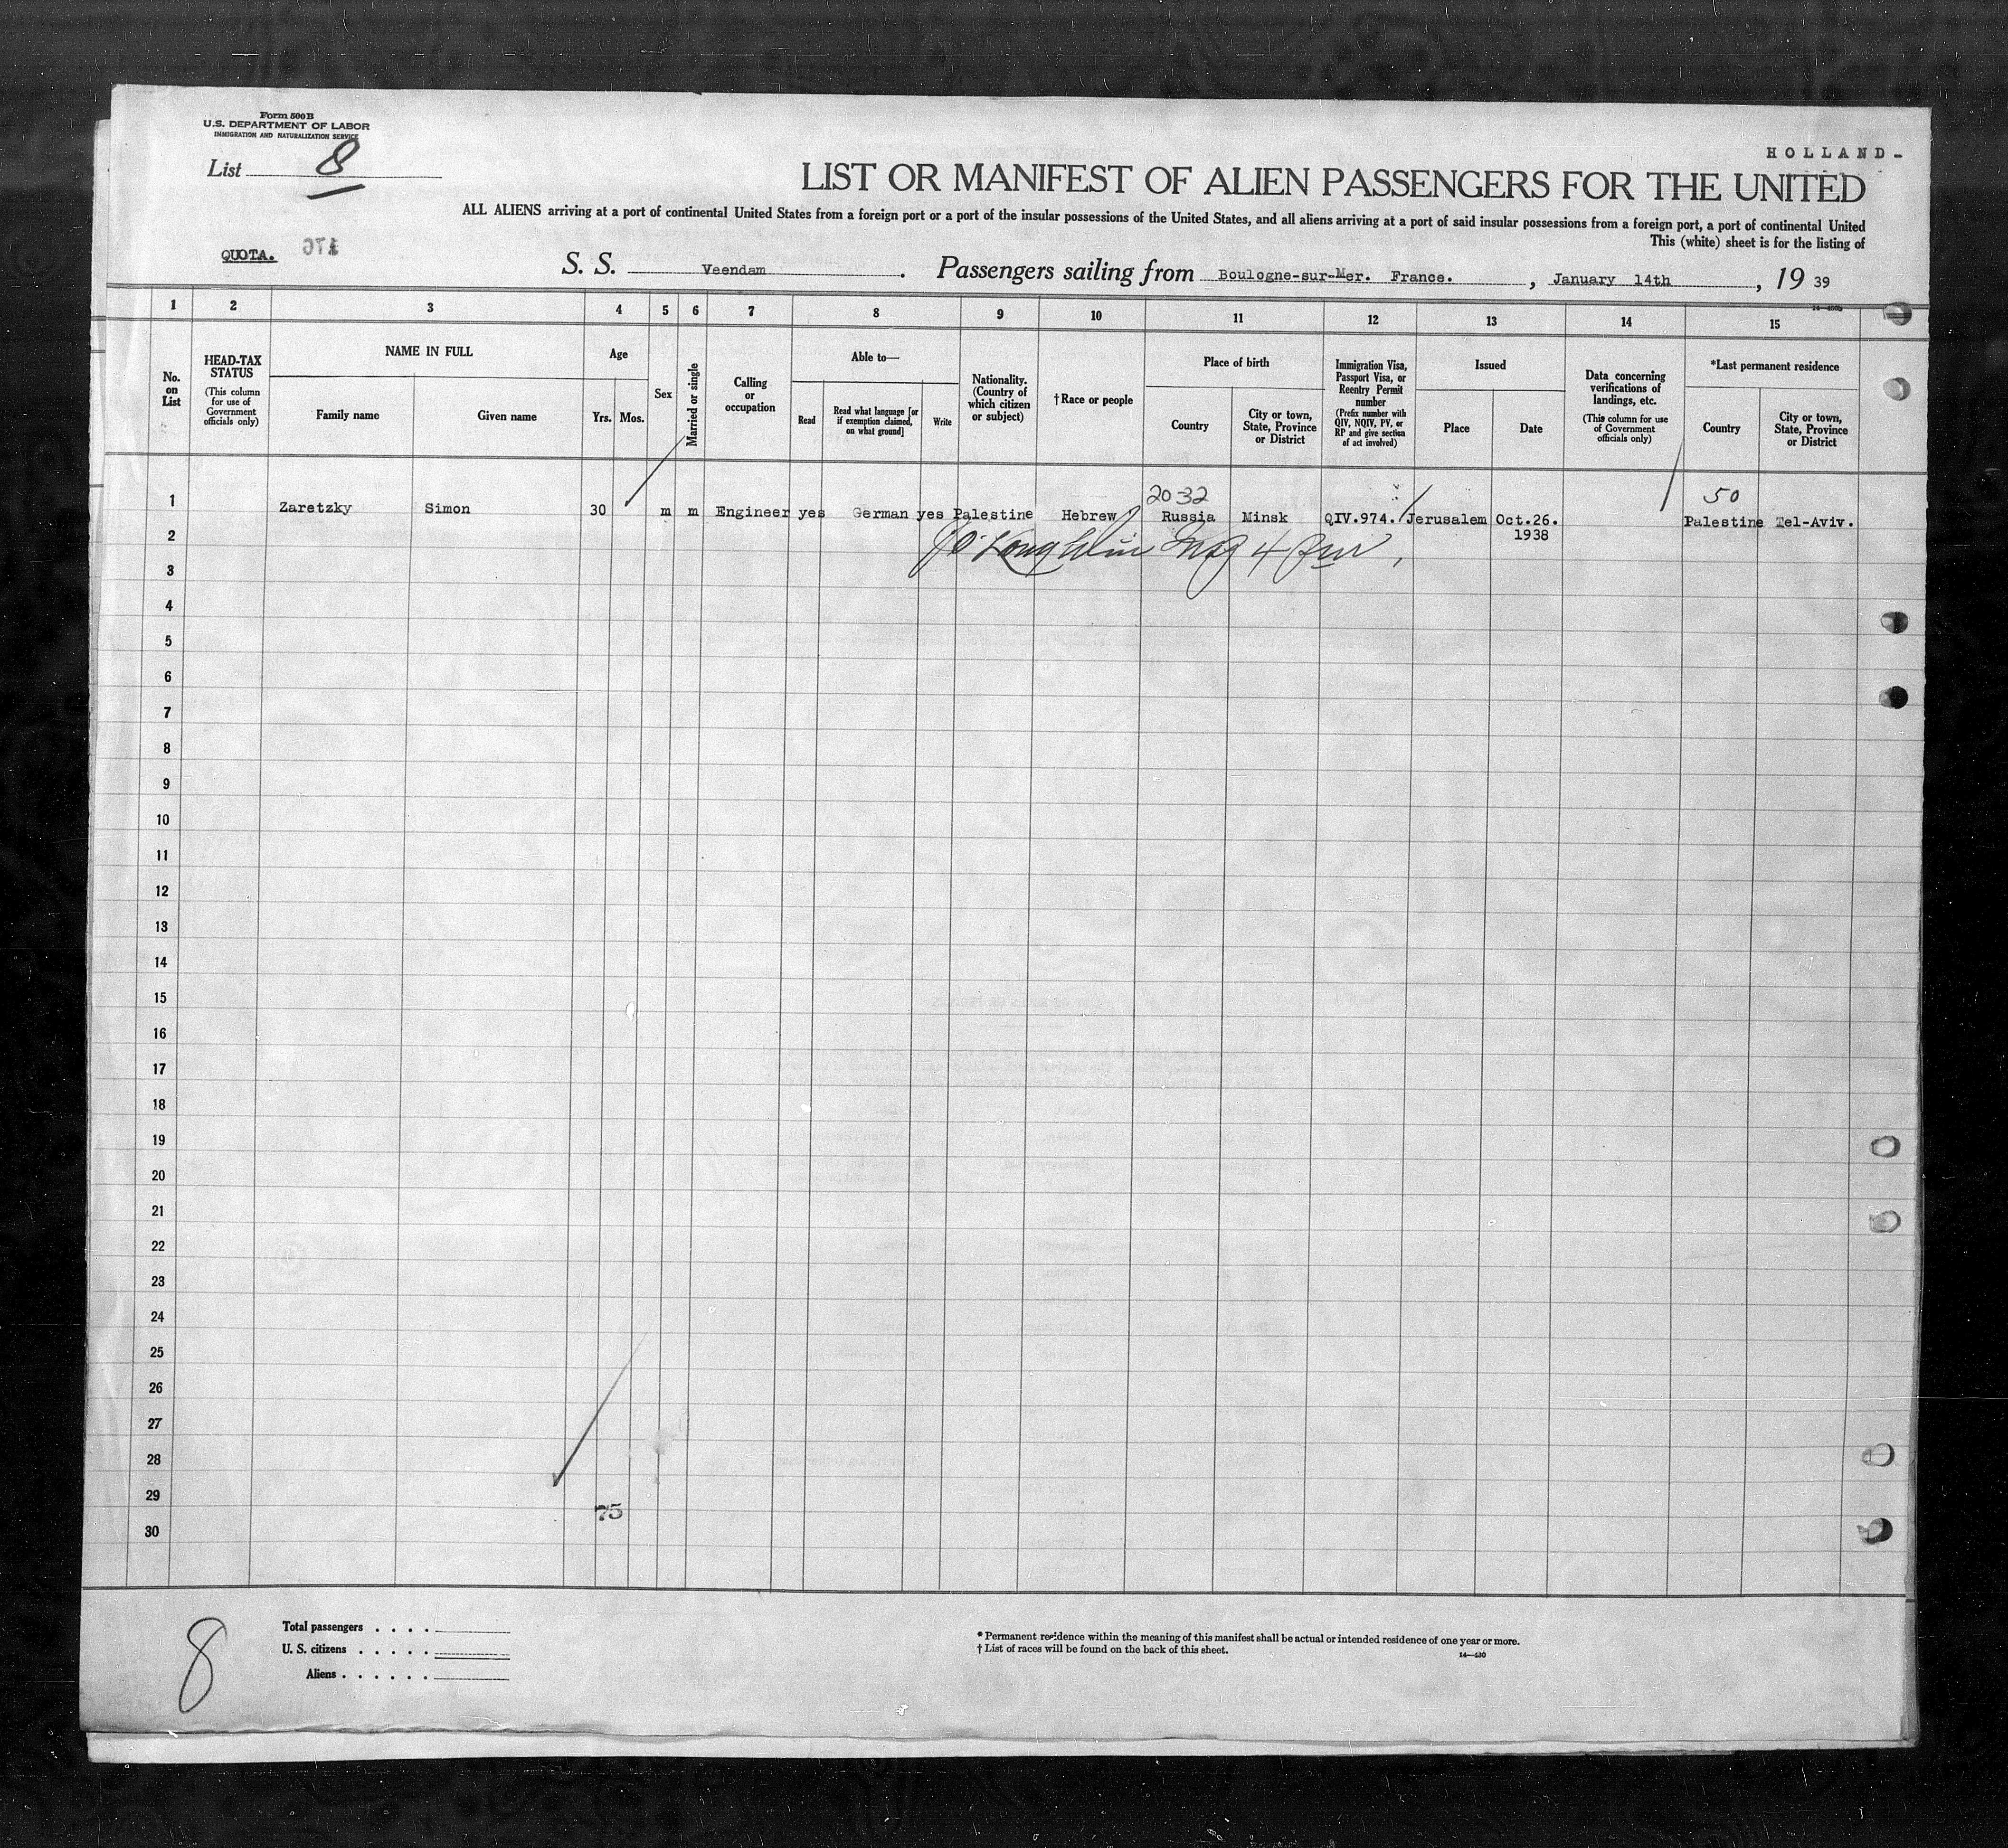 Form 500 B
U.S. DEPARTMENT OF LABOR
IMMIGRATION AND NATURALIZATION SERVICE
List 8
HOLLAND-
LIST OR MANIFEST OF ALIEN PASSENGERS FOR THE UNITED
ALL ALIENS arriving at a port of continental United States from a foreign port or a port of the insular possessions of the United States, and all aliens arriving at a port of said insular possessions from a foreign port, a port of continental United
This (white) sheet is for the listing of
QUOTA.
S. S. Veendam. Passengers sailing from Boulogne-sur-Mer. France., January 14th, 19 39
1 2 3 4 5 6 7 8 9 10 11 12 13 14 15
No. on List
HEAD-TAX STATUS
(This column for use of Government officials only)
NAME IN FULL
Family name
Given name
Age
Yrs. Mos.
Sex
Married or single
Calling or occupation
Able to—
Read
Read what language [or if exemption claimed, on what ground]
Write
Nationality. (Country of which citizen or subject)
†Race or people
Place of birth
Country
City or town, State, Province or District
Immigration Visa, Passport Visa, or Reentry Permit number
(Prefix number with QIV, NQIV, PV, or RP and give section of act involved)
Issued
Place
Date
Data concerning verifications of landings, etc.
(This column for use of Government officials only)
*Last permanent residence
Country
City or town, State, Province or District
2032
50
1 Zaretzky Simon 30 m m Engineer yes German yes Palestine Hebrew Russia Minsk QIV.974. Jerusalem Oct.26. Palestine Tel-Aviv.
2 1938
3
4
5
6
7
8
9
10
11
12
13
14
15
16
17
18
19
20
21
22
23
24
25
26
27
28
29
75
30
8
Total passengers . . . .
U. S. citizens . . . . .
Aliens . . . . . .
* Permanent residence within the meaning of this manifest shall be actual or intended residence of one year or more.
† List of races will be found on the back of this sheet.